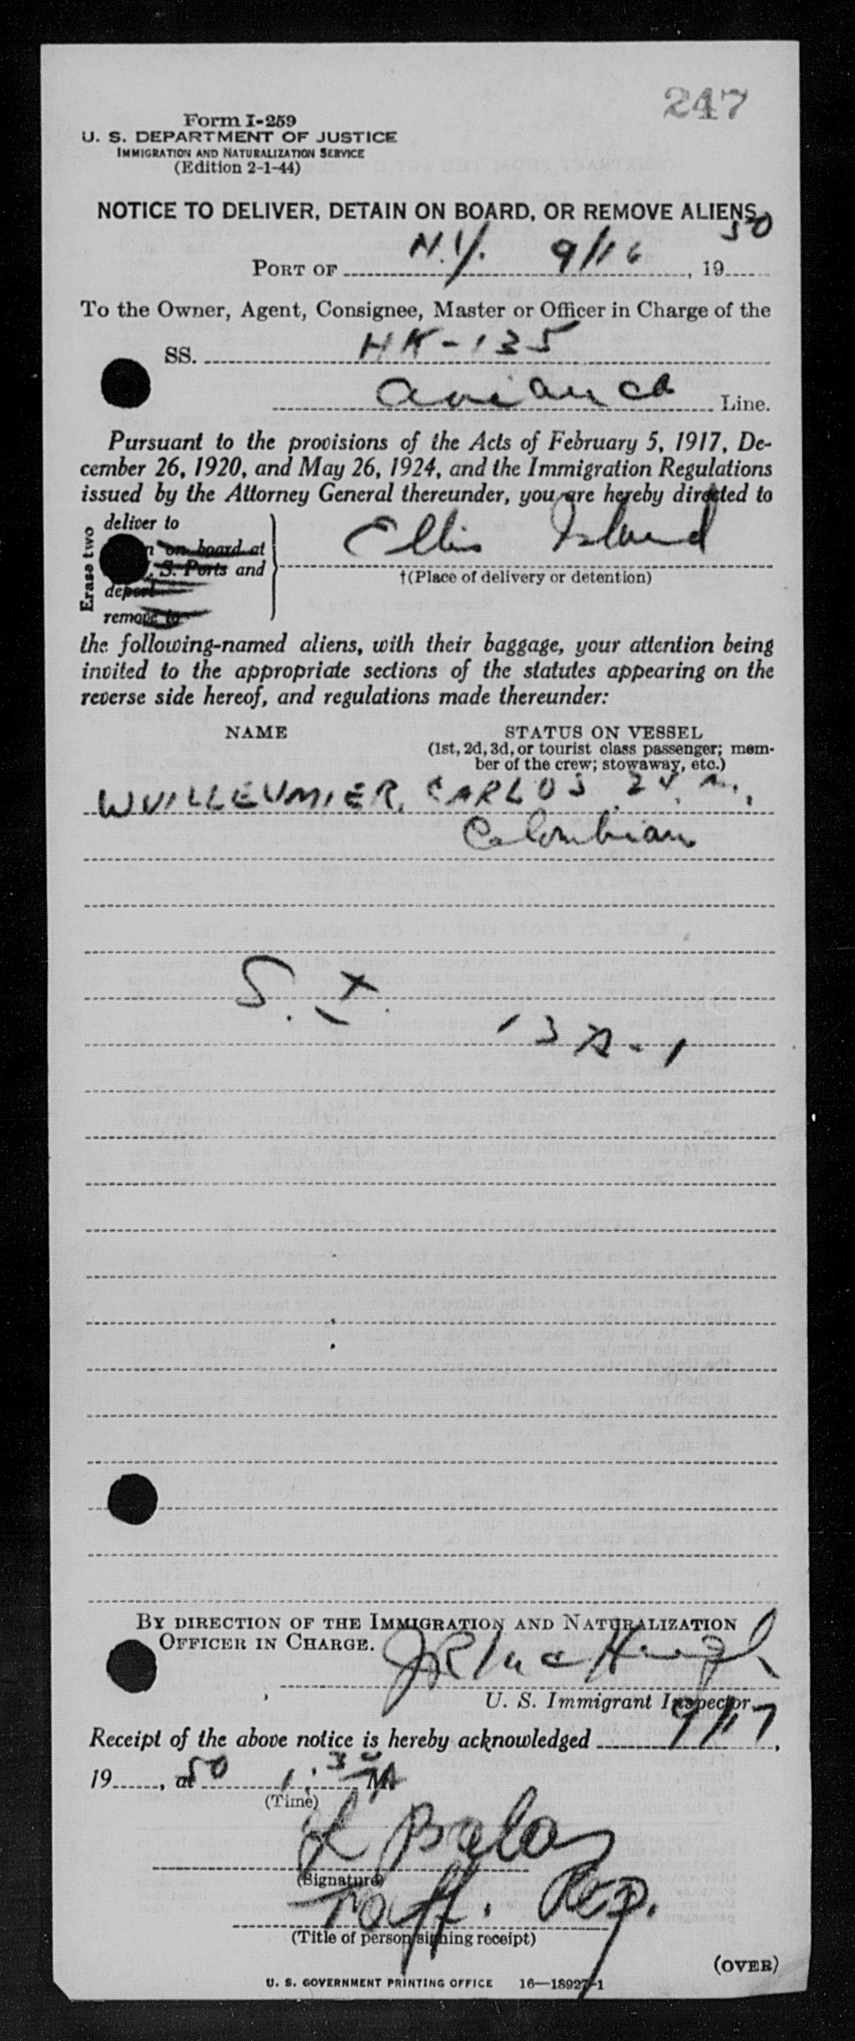 247
Form I-259
U. S. DEPARTMENT OF JUSTICE
IMMIGRATION AND NATURALIZATION SERVICE
(Edition 2-1-44)
NOTICE TO DELIVER, DETAIN ON BOARD, OR REMOVE ALIENS
PORT OF N.Y. 9/16, 1950
To the Owner, Agent, Consignee, Master or Officer in Charge of the
SS. HK-135
Avianca Line.
Pursuant to the provisions of the Acts of February 5, 1917, De-
cember 26, 1920, and May 26, 1924, and the Immigration Regulations
issued by the Attorney General thereunder, you are hereby directed to
Erase two
deliver to
on board at
S. Ports and
deport
remove to
Ellis Island
†(Place of delivery or detention)
the following-named aliens, with their baggage, your attention being
invited to the appropriate sections of the statutes appearing on the
reverse side hereof, and regulations made thereunder:
NAME STATUS ON VESSEL
(1st, 2d, 3d, or tourist class passenger; mem-
ber of the crew; stowaway, etc.)
WUILLEUMIER, CARLOS 24, m.,
Colombian
S. I.
13A-1
BY DIRECTION OF THE IMMIGRATION AND NATURALIZATION
OFFICER IN CHARGE.
U. S. Immigrant Inspector
Receipt of the above notice is hereby acknowledged 9/17,
19 50, at 1:30 AM
(Time)
(Signature)
Traff. Rep.
(Title of person signing receipt)
(OVER)
U. S. GOVERNMENT PRINTING OFFICE 16—18927-1